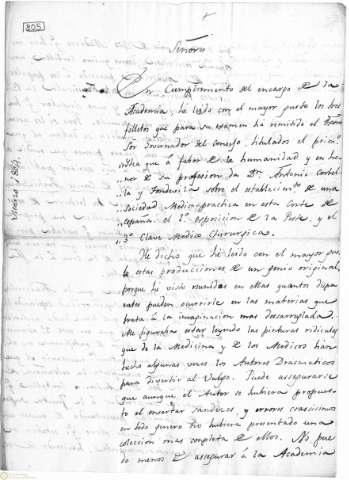 805
Señores
En Cumplimiento del encargo de la
Academia, he leido con el mayor gusto los tres
folletos que para su examen ha remitido el
Sor Governador del Consejo, titulados el primero
Idea que á favor de la humanidad y en ho-
nor de su profesion da Dn. Antonio
y Fondevila sobre el establecimto de una
Sociedad Medico practica en esta Corte de
España: el 2º. Exposicion de la Peste, y el
3º Clave Medico Chirurgica.
He dicho que he leido con el mayor gus-
to estas producciones de un genio original,
porque he visto reunidas en ellas quantos dispa-
rates pueden ocurrirle en las materias que
trata á la imaginacion mas desarreglada.
Me figuraba estar leyendo las pinturas ridiculas
que de la Medicina y de los Medicos han
hecho algunas veces los Autores Dramaticos
para divertir al Vulgo. Puede asegurarse
que aunque el Autor se hubiera propues-
to el ensartar sandeces, y errores crasisimos
en todo genero no hubiera presentado una
coleccion mas completa de ellos. No pue-
do menos de asegurar á la Academia